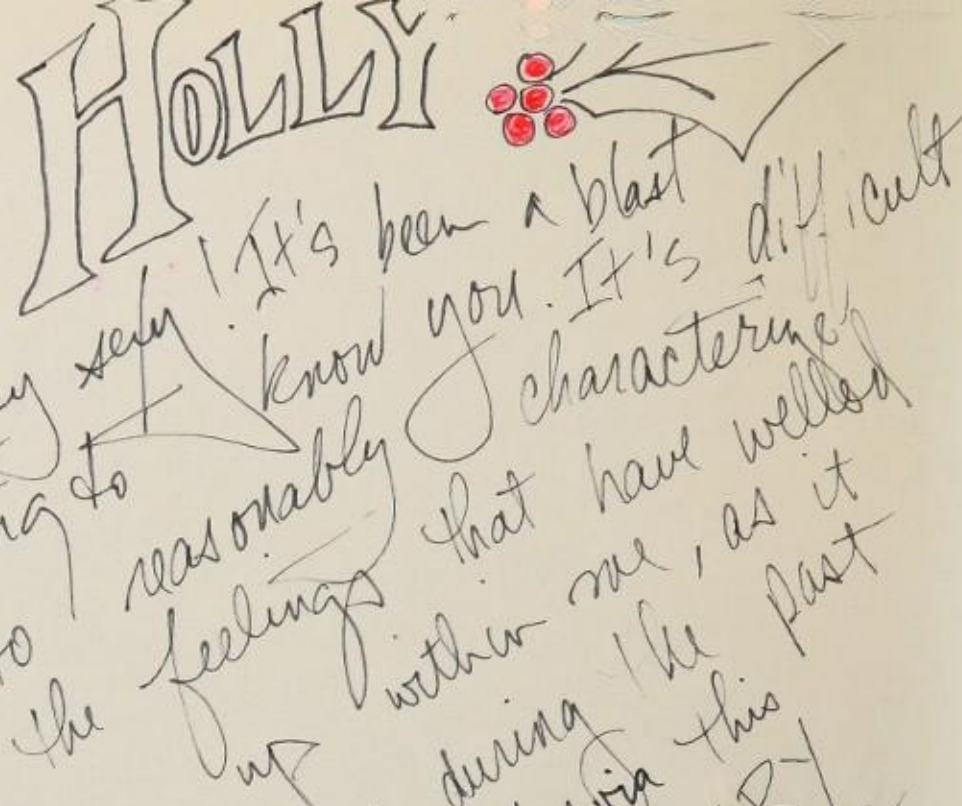 HOLLY
sexy! It's been a blast
to know you. It's difficult
to reasonably characterize
the feelings that have welled
up within me, as it
during the past
via this